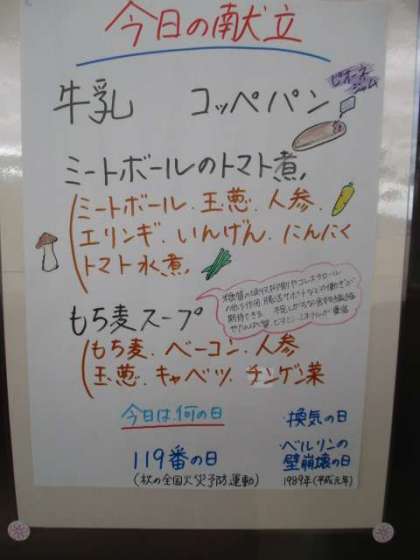 今日の献立
牛乳 コッペパン
ピオーネ
ジャム
ミートボールのトマト煮
ミートボール、玉葱、人参、
エリンギ、いんげん、にんにく
トマト水煮
もち麦スープ
もち麦、ベーコン、人参
玉葱、キャベツ、チンゲン菜
今日は何の日
119番の日
(秋の全国火災予防運動)
・換気の日
・ベルリンの
壁崩壊の日
1989年(平成元年)